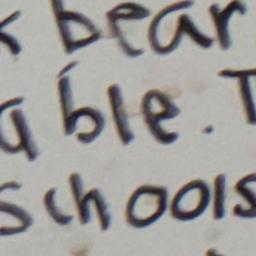 bear
able. T
schools